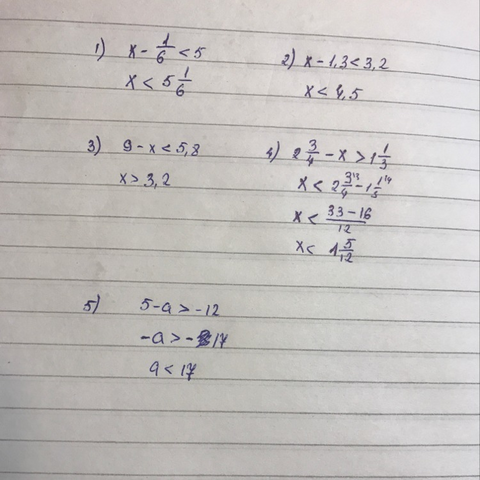 1) x - 1/6 < 5
x < 5 1/6
2) x - 1,3 < 3,2
x < 4,5
3) 9 - x < 5,8
x > 3,2
4) 2 3/4 - x > 1 1/3
x < 2 3/4 - 1 1/3
x < 33 - 16/12
x < 1 5/12
5) 5 - a > -12
-a > -17
a < 17